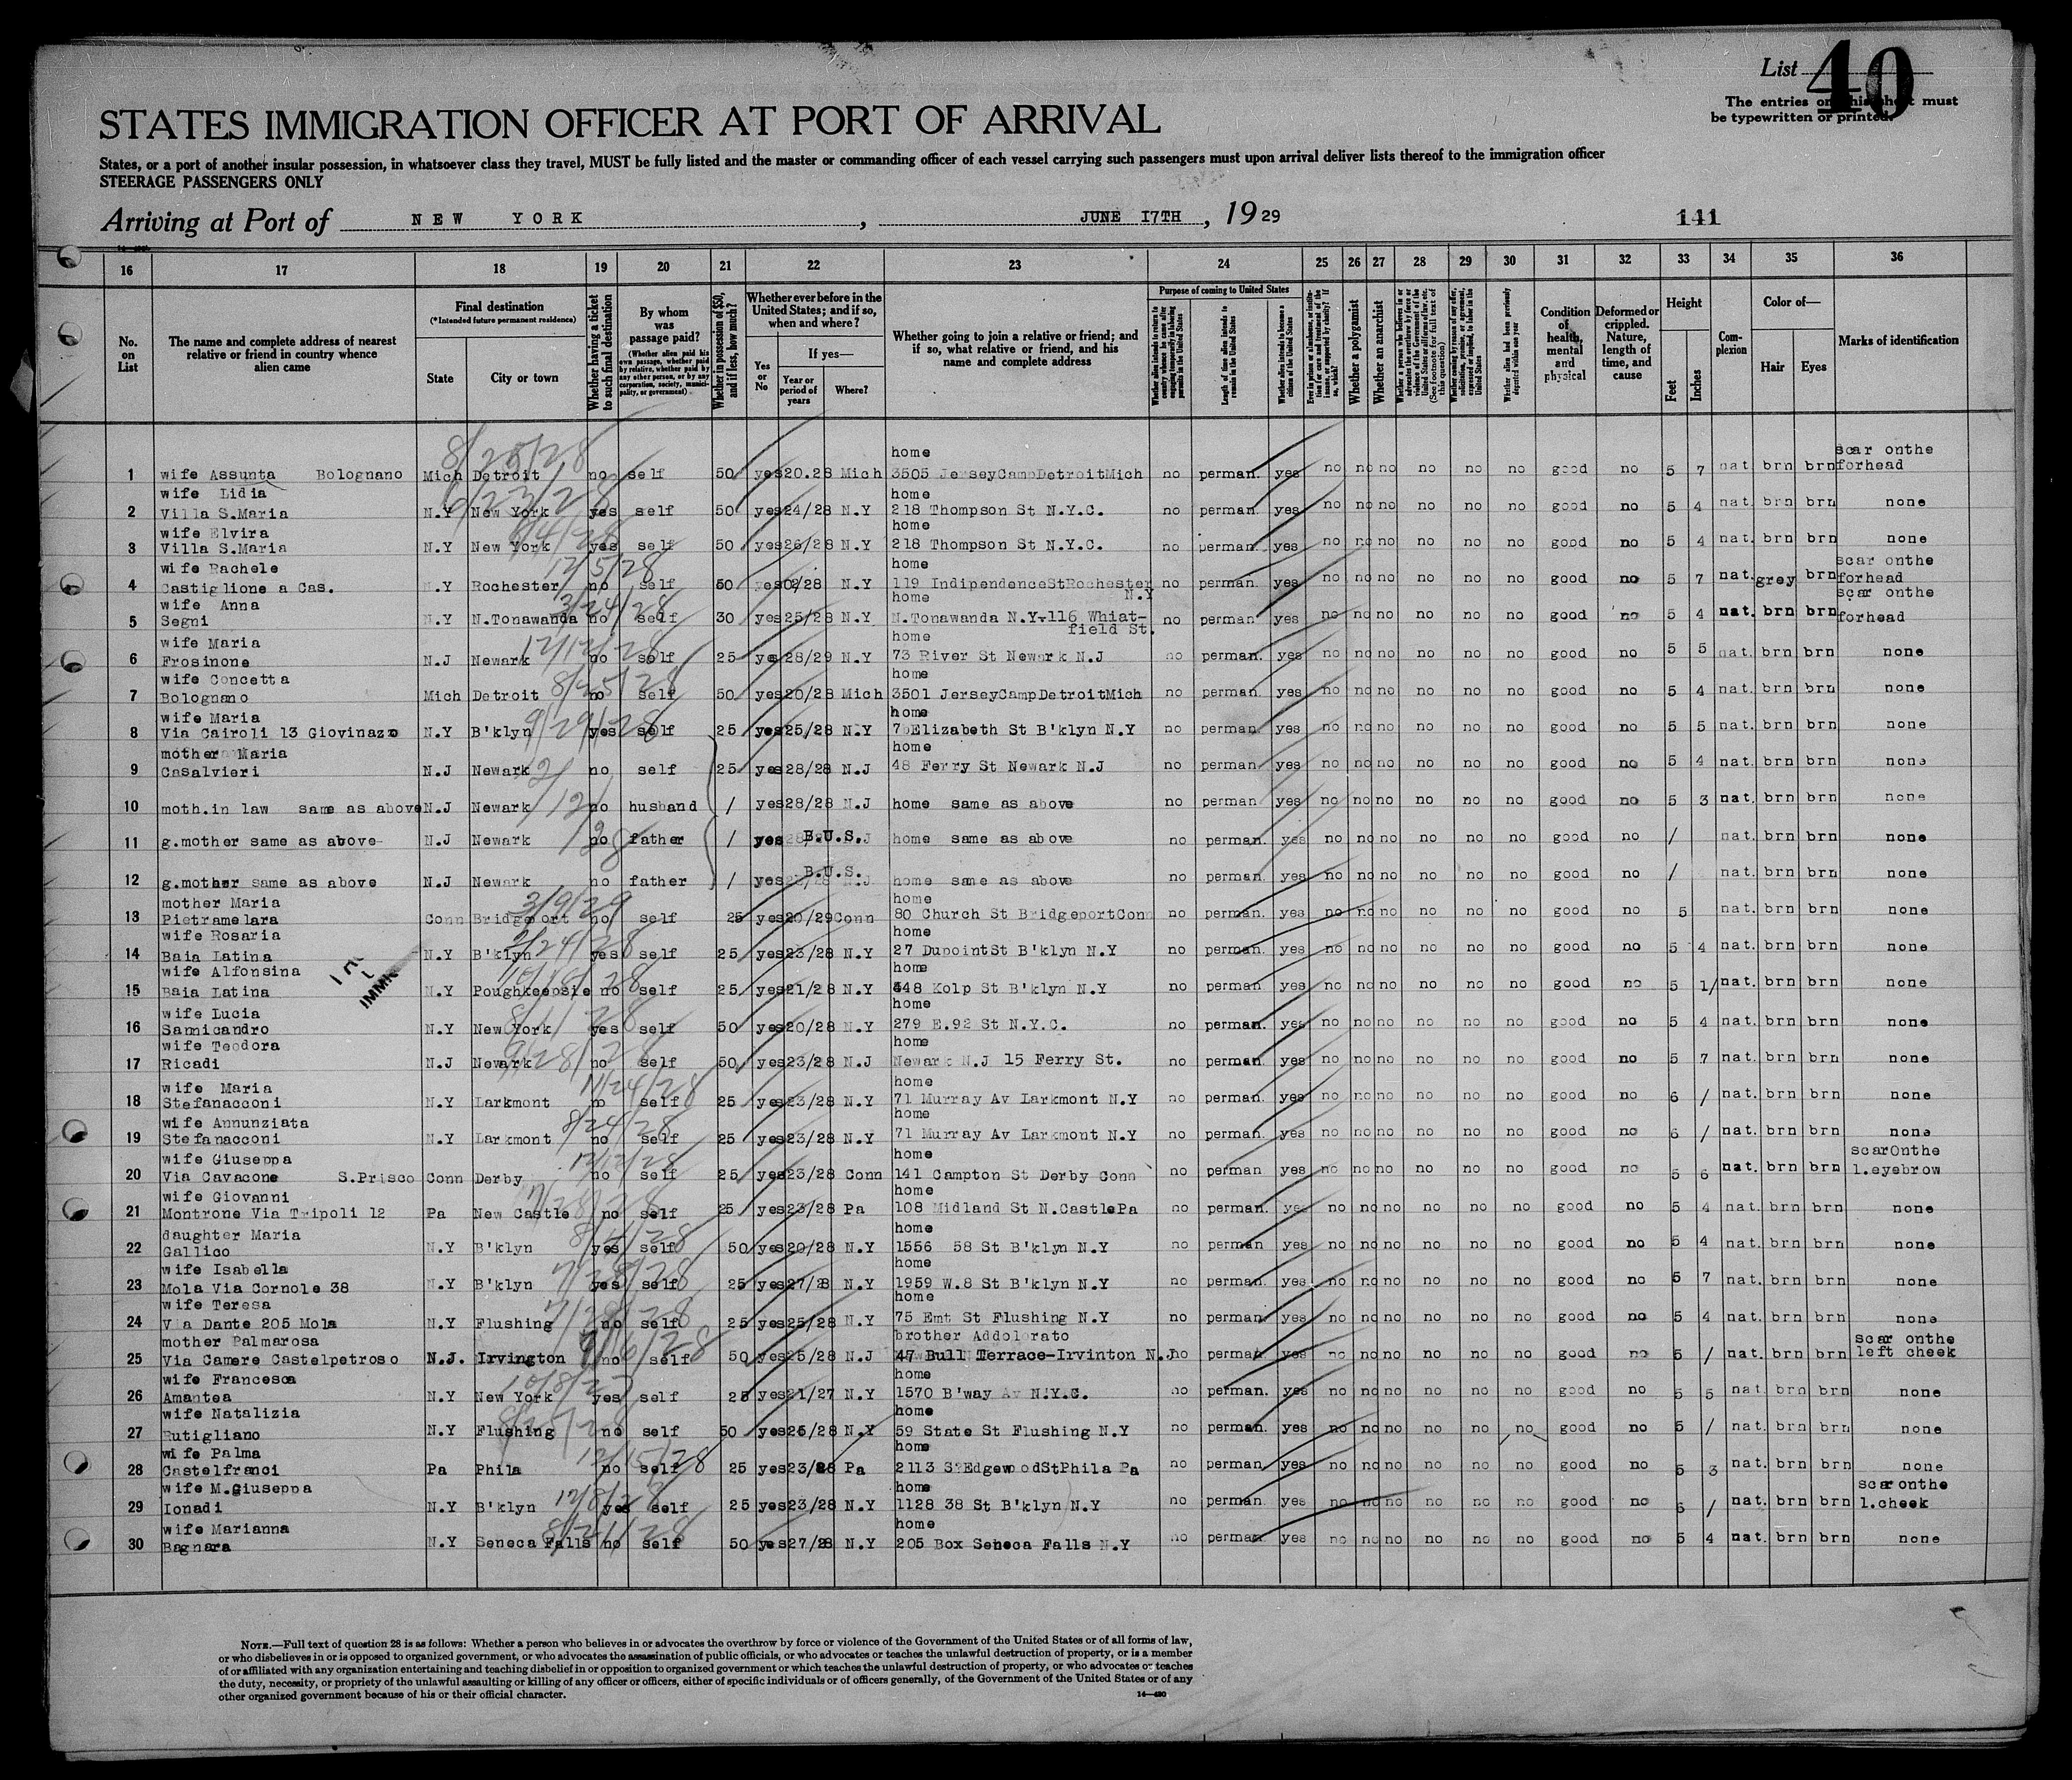 List 40
The entries on this sheet must
be typewritten or printed.
STATES IMMIGRATION OFFICER AT PORT OF ARRIVAL
States, or a port of another insular possession, in whatsoever class they travel, MUST be fully listed and the master or commanding officer of each vessel carrying such passengers must upon arrival deliver lists thereof to the immigration officer
STEERAGE PASSENGERS ONLY
Arriving at Port of NEW YORK, JUNE 17TH, 1929
141
16 17 18 19 20 21 22 23 24 25 26 27 28 29 30 31 32 33 34 35 36
No. on List
The name and complete address of nearest relative or friend in country whence alien came
Final destination
(*Intended future permanent residence)
State
City or town
Whether having a ticket to such final destination
By whom was passage paid?
(Whether alien paid his own passage, whether paid by relative, whether paid by any other person, or by any corporation, society, municipality, or government)
Whether in possession of $50, and if less, how much?
Whether ever before in the United States; and if so, when and where?
Yes or No
If yes—
Year or period of years
Where?
Whether going to join a relative or friend; and if so, what relative or friend, and his name and complete address
Purpose of coming to United States
Length of time alien intends to remain in the United States
Whether alien intends to become a citizen of the United States
Whether a polygamist
Whether an anarchist
Condition of health, mental and physical
Deformed or crippled. Nature, length of time, and cause
Height
Feet
Inches
Complexion
Color of—
Hair
Eyes
Marks of identification
8/25/28
home scar onthe
1 wife Assunta Bolognano Mich Detroit no self 50 yes 20.28 Mich 3505 JerseyCampDetroitMich no perman. yes no no no no no no good no 5 7 nat. brn brn forhead
wife Lidia 6/23/28 home
2 Villa S.Maria N.Y New York yes self 50 yes 24/28 N.Y 218 Thompson St N.Y.C. no perman. yes no no no no no no good no 5 4 nat. brn brn none
wife Elvira home
3 Villa S.Maria N.Y New York yes self 50 yes 26/28 N.Y 218 Thompson St N.Y.C. no perman. yes no no no no no no good no 5 4 nat. brn brn none
wife Rachele 12/5/28 home scar onthe
4 Castiglione a Cas. N.Y Rochester no self 50 yes 02/28 N.Y 119 IndipendenceStRochester N.Y no perman. yes no no no no no no good no 5 7 nat. grey brn forhead
wife Anna 3/24/28 home scar onthe
5 Segni N.Y N.Tonawanda no self 30 yes 25/28 N.Y N.Tonawanda N.Y-116 Whiat-
field St. no perman. yes no no no no no no good no 5 4 nat. brn brn forhead
wife Maria 12/12/28 home
6 Frosinone N.J Newark no self 25 yes 28/29 N.Y 73 River St Newark N.J no perman. yes no no no no no no good no 5 5 nat. brn brn none
wife Concetta 8/25/28 home
7 Bolognano Mich Detroit no self 50 yes 26/28 Mich 3501 JerseyCampDetroitMich no perman. yes no no no no no no good no 5 4 nat. brn brn none
wife Maria 9/29/28 home
8 Via Cairoli 13 Giovinazzo N.Y B'klyn yes self 25 yes 25/28 N.Y Elizabeth St B'klyn N.Y no perman. yes no no no no no no good no 5 5 nat. brn brn none
mother Maria home
9 Casalvieri N.J Newark no self 25 yes 28/28 N.J 48 Ferry St Newark N.J no perman. yes no no no no no no good no 5 4 nat. brn brn none
2/12/28
10 moth.in law same as above N.J Newark no husband / yes 28/28 N.J home same as above no perman yes no no no no no no good no 5 3 nat. brn brn none
11 g.mother same as above N.J Newark no father / yes B.U.S. home same as above no perman. yes no no no no no no good no / nat. brn brn none
12 g.mother same as above N.J Newark no father / yes B.U.S. home same as above no perman. yes no no no no no no good no / nat. brn brn none
mother Maria 3/9/29 home
13 Pietramelara Conn Bridgeport no self 25 yes 20/29 Conn 80 Church St BridgeportConn no perman. yes no no no no no no good no 5 nat. brn brn none
wife Rosaria home
14 Baia Latina N.Y B'klyn yes self 25 yes 23/28 N.Y 27 DupointSt B'klyn N.Y no perman. yes no no no no no no good no 5 4 nat. brn brn none
wife Alfonsina 10/18/28 home
15 Baia Latina N.Y Poughkeepsie no self 25 yes 21/28 N.Y 448 Kolp St B'klyn N.Y no perman. yes no no no no no no good no 5 1/ nat. brn brn none
IMMI
wife Lucia home
16 Sannicandro N.Y New York yes self 50 yes 20/28 N.Y 279 E.92 St N.Y.C. no perman. yes no no no no no no good no 5 4 nat. brn brn none
wife Teodora 9/28/28 home
17 Ricadi N.J Newark no self 50 yes 23/28 N.J Newark N.J 15 Ferry St. no perman. yes no no no no no no good no 5 7 nat. brn brn none
wife Maria 11/24/28 home
18 Stefanacconi N.Y Larkmont no self 25 yes 23/28 N.Y 71 Murray Av Larkmont N.Y no perman. yes no no no no no no good no 6 / nat. brn brn none
wife Annunziata 8/24/28 home
19 Stefanacconi N.Y Larkmont no self 25 yes 23/28 N.Y 71 Murray Av Larkmont N.Y no perman. yes no no no no no no good no 6 / nat. brn brn none
wife Giuseppa 12/12/28 home scarOnthe
20 Via Cavacone S.Prisco Conn Derby no self 25 yes 23/28 Conn 141 Campton St Derby Conn no perman yes no no no no no no good no 5 6 nat. brn brn l.eyebrow
wife Giovanni home
21 Montrone Via Tripoli 12 Pa New Castle no self 25 yes 23/28 Pa 108 Midland St N.CastlePa no perman. yes no no no no no no good no 5 4 nat. brn brn none
daughter Maria home
22 Gallico N.Y B'klyn yes self 50 yes 20/28 N.Y 1556 58 St B'klyn N.Y no perman yes no no no no no no good no 5 4 nat. brn brn none
wife Isabella 7/28/28 home
23 Mola Via Cornole 38 N.Y B'klyn yes self 25 yes 27/28 N.Y 1959 W.8 St B'klyn N.Y no perman. yes no no no no no no good no 5 7 nat. brn brn none
wife Teresa 7/28/28 home
24 Via Dante 205 Mola N.Y Flushing no self 25 yes 25/28 N.Y 75 Emt St Flushing N.Y no perman. yes no no no no no no good no 5 4 nat. brn brn none
mother Palmarosa brother Addolorato scar onthe
25 Via Camere Castelpetroso N.J. Irvington no self 50 yes 25/28 N.J 47 Bull Terrace-Irvinton N.J no perman. yes no no no no no no good no 5 / nat. brn brn left cheek
wife Francesca 10/8/27 home
26 Amantea N.Y New York yes self 25 yes 21/27 N.Y 1570 B'way Av N.Y.C. no perman. yes no no no no no no good no 5 5 nat. brn brn none
wife Natalizia home
27 Rutigliano N.Y Flushing no self 50 yes 26/28 N.Y 59 State St Flushing N.Y no perman. yes no no no no no no good no 5 / nat. brn brn none
wife Palma 12/15/28 home
28 Castelfranci Pa Phila no self 25 yes 23/28 Pa 2113 S?EdgewoodStPhila Pa no perman. yes no no no no no no good no 5 3 nat. brn brn none
wife M.Giuseppa 12/8/28 home scar onthe
29 Ionadi N.Y B'klyn yes self 25 yes 23/28 N.Y 1128 38 St B'klyn N.Y no perman. yes no no no no no no good no 5 / nat. brn brn l.cheek
wife Marianna 8/21/28 home
30 Bagnara N.Y Seneca Falls no self 50 yes 27/28 N.Y 205 Box Seneca Falls N.Y no perman. yes no no no no no no good no 5 4 nat. brn brn none
NOTE.—Full text of question 28 is as follows: Whether a person who believes in or advocates the overthrow by force or violence of the Government of the United States or of all forms of law,
or who disbelieves in or is opposed to organized government, or who advocates the assassination of public officials, or who advocates or teaches the unlawful destruction of property, or is a member
of or affiliated with any organization entertaining and teaching disbelief in or opposition to organized government or which teaches the unlawful destruction of property, or who advocates or teaches
the duty, necessity, or propriety of the unlawful assaulting or killing of any officer or officers, either of specific individuals or of officers generally, of the Government of the United States or of any
other organized government because of his or their official character.
14—430